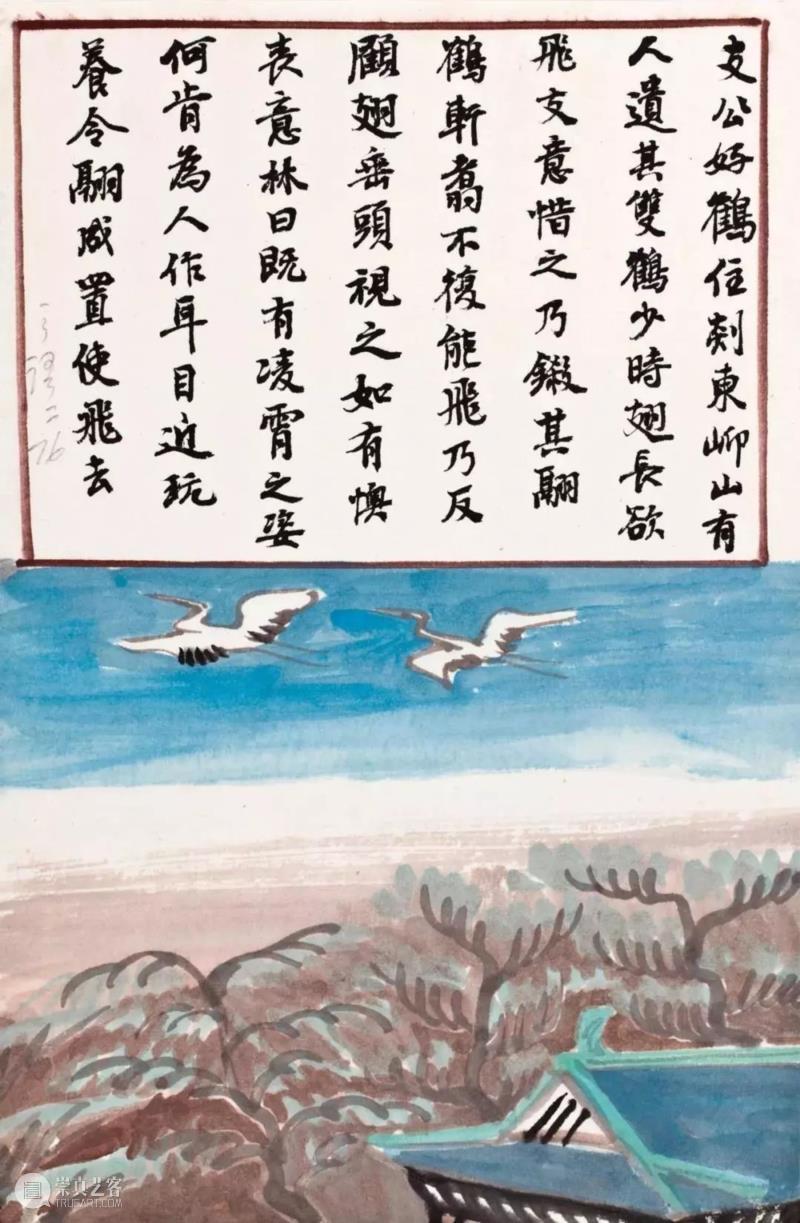 支公好鶴住剡東岇山有
人遺其雙鶴少時翅長欲
飛支意惜之乃鎩其翮
鶴軒翥不復能飛乃反
顧翅垂頭視之如有懊
喪意林曰既有凌霄之姿
何肯為人作耳目近玩
養令翮成置使飛去
崇真艺客
TRUEART.COM